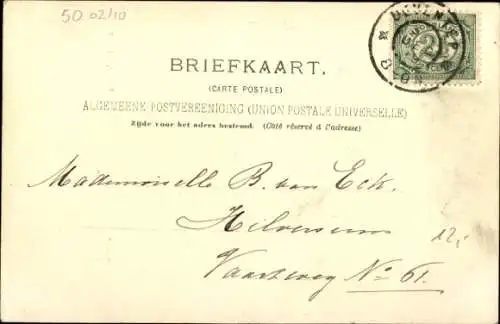 50 02/10
BRIEFKAART.
(CARTE POSTALE)
ALGEMEENE POSTVEREENIGING (UNION POSTALE UNIVERSELLE)
Zijde voor het adres bestemd. (Côté réservé à l'adresse)
Mademoiselle B. van Eck.
Hilversum
12,-
Vaartweg No 61.